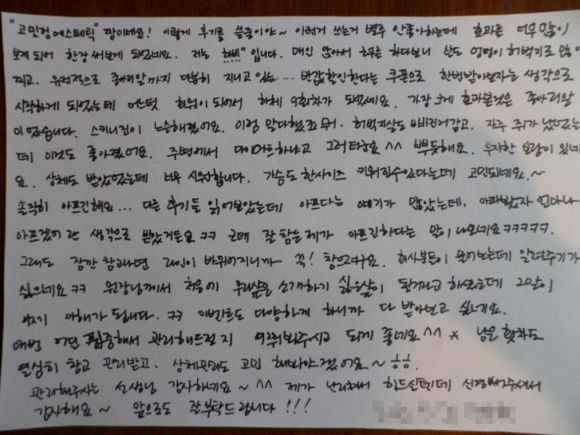 "고민정에스테틱" 짱이네요! 이렇게 후기를 쓸줄이야~ 이런거 쓰는거 별루 안좋아하는데 효과를 너무많이
보게되어 한장 써보게 되었네요. 저는 "하비" 입니다. 매일 앉아서 하다보니 살도 엉덩이 허벅지로 많이
찌고. 유전적으로 종아리알까지 다분히 지니고 있는... 반값할인한다는 쿠폰으로 한번받아보자는 생각으로
시작하게 되었는데 어느덧 회원이 되어서 하체 9회차가 되었네요. 가장 크게 효과본것은 종아리알
이었습니다. 스키니진이 느슨해졌어요. 이럼 말다했죠 뭐. 허벅지살도 빠져가고. 자주 쥐가 났었는
데 이것도 좋아졌어요. 주변에서 다이어트하냐고 그러더라요 ^^ 뿌듯해요. 투자한 보람이 있네
요. 상체도 받았었는데 너무 시원합니다. 가슴도 한사이즈 키워질수있다는데 고민되네요.~
솔직히 아프긴해요... 다른 후기들 읽어보았는데 아프다는 얘기가 많았는데. 아파봤자 얼마나
아프겠어란 생각으로 받았거든요 ㅋㅋ 근데 잘참을 제가 아프긴하다는 말이 나오네요ㅋㅋㅋㅋㅋ.
그래도 잠깐 참으면 라인이 바뀌어지니까 꼭! 참으세요. 회사분들이 물어보는데 알려주기가
싫으네요 ㅋㅋ 원장님께서 처음에 뭐 소개하기 싫은샵이 될거라고 하셨는데 그말이
이해가 됩니다. ㅋㅋ 이벤트도 다양하게 하니까 다 받아보고 싶네요.
매번 어떤 집중해서 관리해드릴지 여쭤봐주시고 되게 좋네요 ^^ * 남은 횟차도
열심히 참고 관리받고. 상체관리도 고민 해봐야겠어요~ 하하.
관리해주시는 선생님 감사하네요~ ^^ 제가 힘드실텐데 신경써주셔서
감사해요~ 앞으로도 잘부탁드립니다!!!